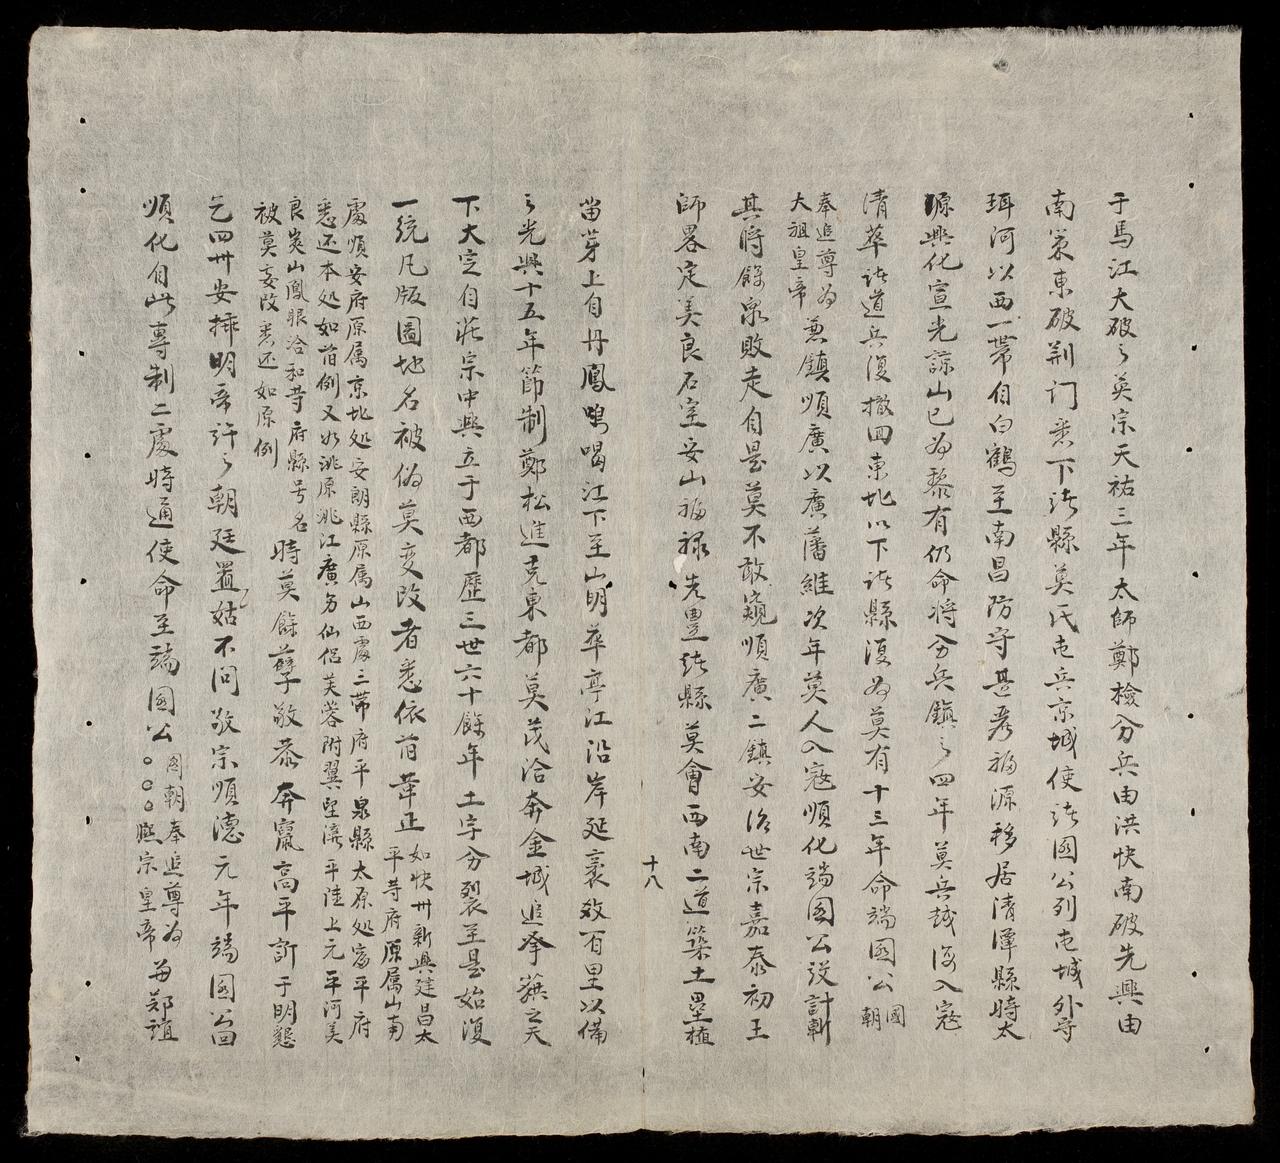 于馬江大破之英宗天祐三年太師鄭檢分兵由洪快南破先興由
南策東破荆门悉下諸縣莫氏屯兵京城使諸國公列屯城外守
珥河以西一帶自白鶴至南昌防守甚嚴福源移居清潭縣時太
原興化宣光諒山已為黎有仍命将分兵鎮之四年莫兵越海入寇
清華諸道兵復撤回東北以下諸縣復為莫有十三年命端國公國朝
奉追尊為太祖皇帝兼鎮順廣以廣藩維次年莫人入寇順化端國公設計斬
其將餘衆敗走自是莫不敢窺順廣二鎮安治世宗嘉泰初王
師畧定美良石室安山福禄先豊諸縣莫會西南二道築土壘植
十八
苗芽上自丹鳳喝江下至山明華亭江沿岸延袤数百里以備
之光興十五年節制鄭松進克東都莫茂洽奔金城追擒之天
下大定自莊宗中興立于西都歷三世六十餘年土宇分裂至是始復
一統凡版圖地名被偽莫变改者悉依前革正如快州新興建昌太平等府原属山南
處順安府原属京北処安朗縣原属山西處三帶府平泉縣太原処富平府
悉还本処如前例又如洮原洮江廣另仙侣芙蓉附翼望濟平陸上元平河美
良峩山鳳眼洽和等府縣号名
被莫妄改悉还如原例
時莫餘孽敬恭奔竄高平訴于明懇
乞四州安揷明帝許之朝廷置姑不问敬宗順德元年端國公回
順化自此專制二處時通使命至端國公國朝奉追尊為熙宗皇帝每鄭誼